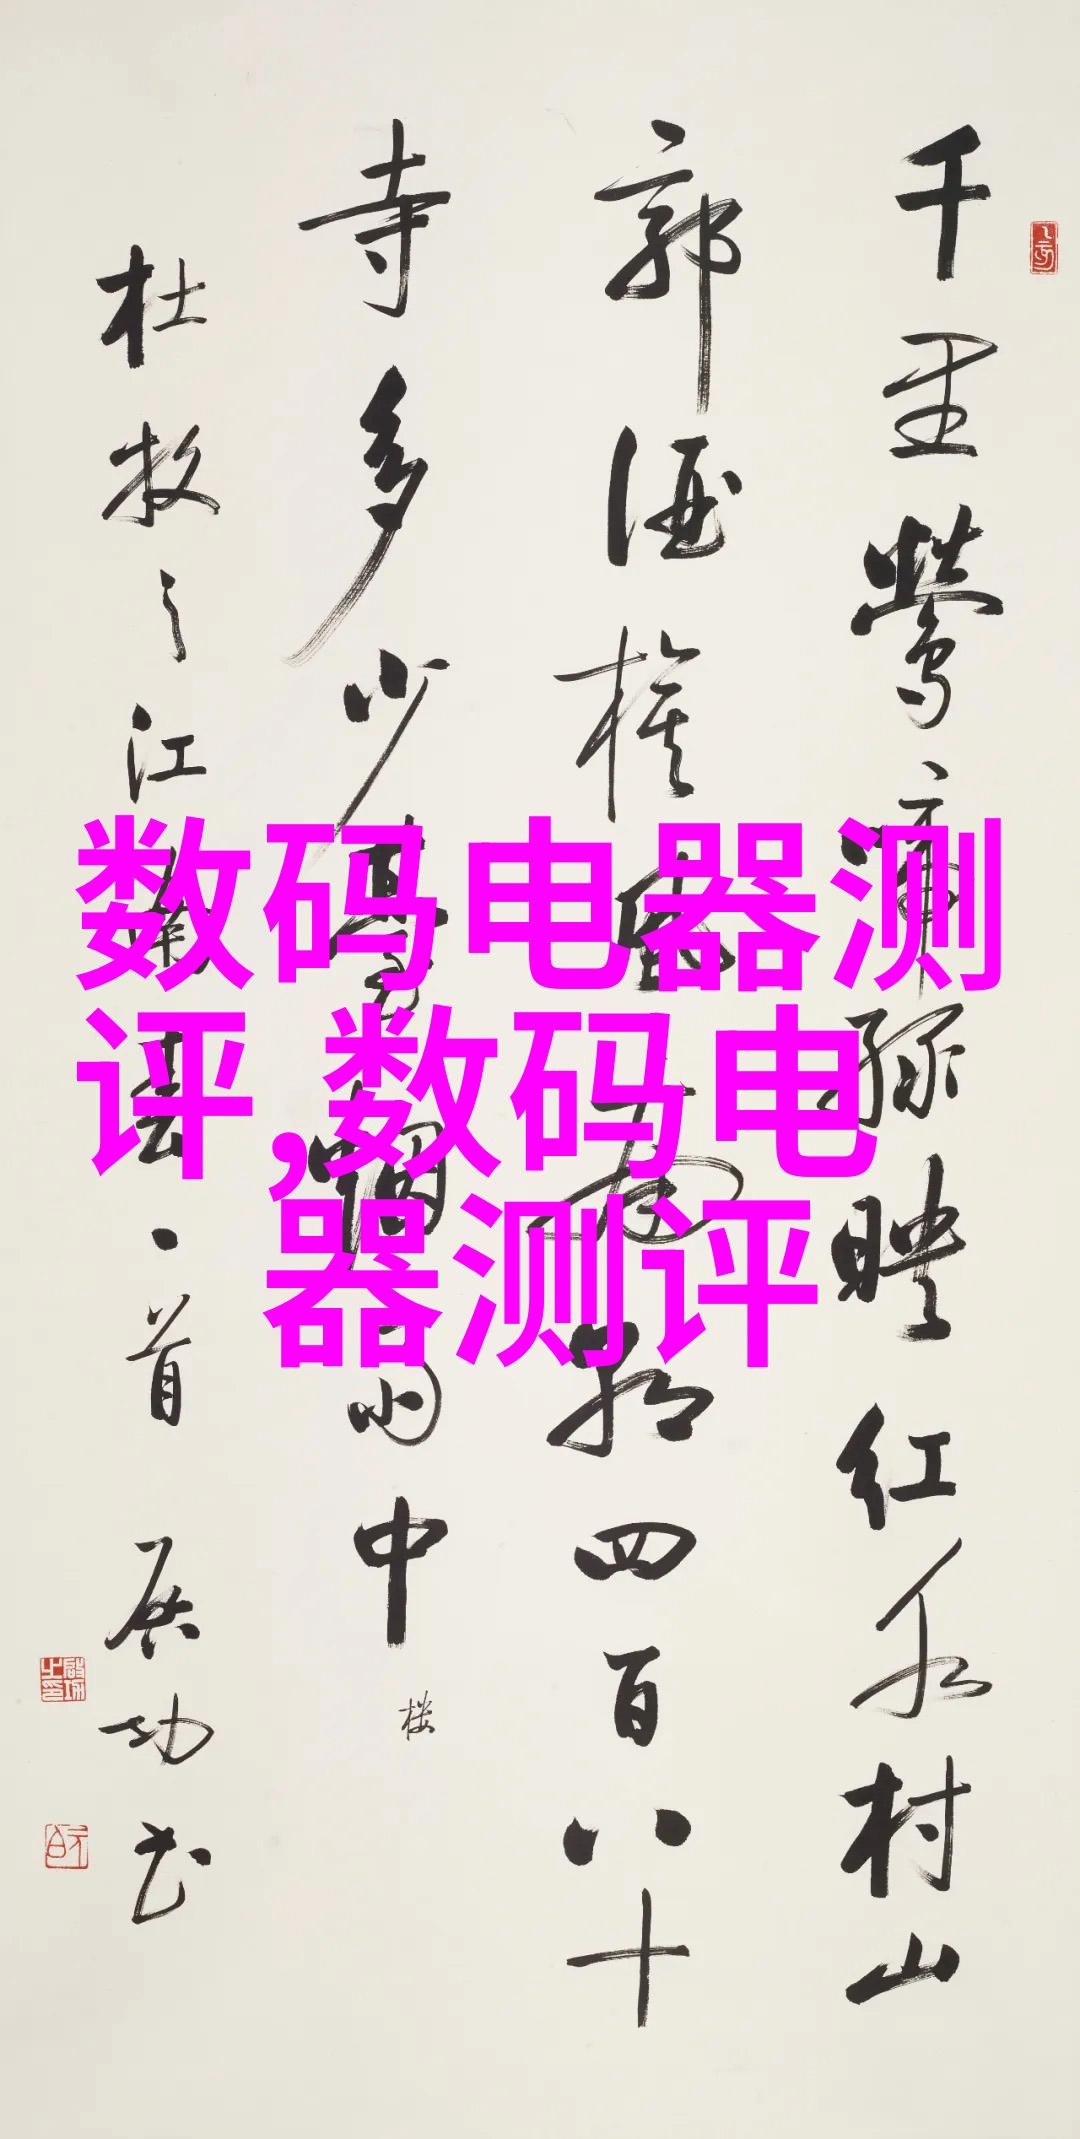 千里鶯啼绿映红水村山
郭酒旗風南朝四百八十
寺多少臺煙雨中 楼
杜牧之江南春一首 启功书
数码电器测
评,数码电
器测评